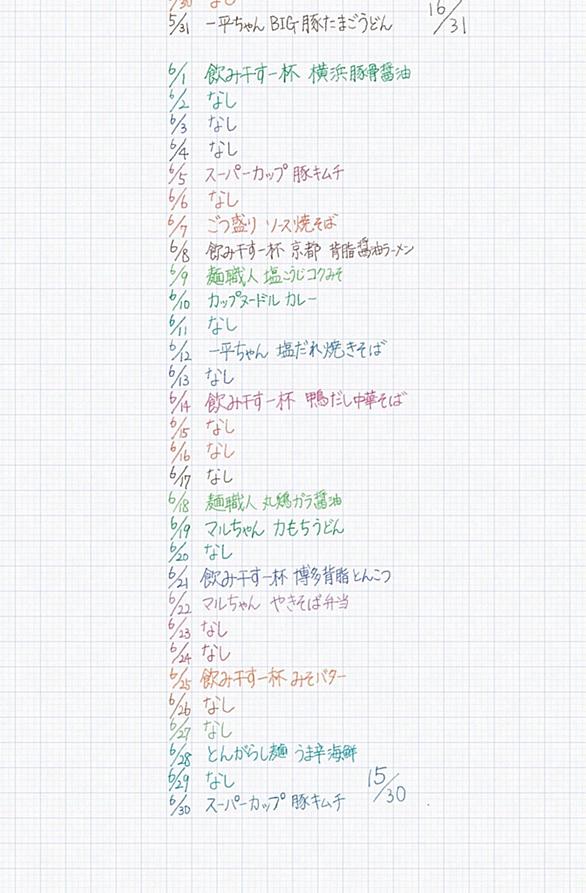 5/30 なし
5/31 一平ちゃん BIG 豚たまごうどん 16/31
6/1 飲み干す一杯 横浜豚骨醤油
6/2 なし
6/3 なし
6/4 なし
6/5 スーパーカップ 豚キムチ
6/6 なし
6/7 ごつ盛り ソース焼そば
6/8 飲み干す一杯 京都 背脂醤油ラーメン
6/9 麺職人 塩こうじコクみそ
6/10 カップヌードル カレー
6/11 なし
6/12 一平ちゃん 塩だれ焼きそば
6/13 なし
6/14 飲み干す一杯 鴨だし中華そば
6/15 なし
6/16 なし
6/17 なし
6/18 麺職人 丸鶏ガラ醤油
6/19 マルちゃん 力もちうどん
6/20 なし
6/21 飲み干す一杯 博多背脂とんこつ
6/22 マルちゃん やきそば弁当
6/23 なし
6/24 なし
6/25 飲み干す一杯 みそバター
6/26 なし
6/27 なし
6/28 とんがらし麺 うま辛海鮮
6/29 なし
6/30 スーパーカップ 豚キムチ 15/30